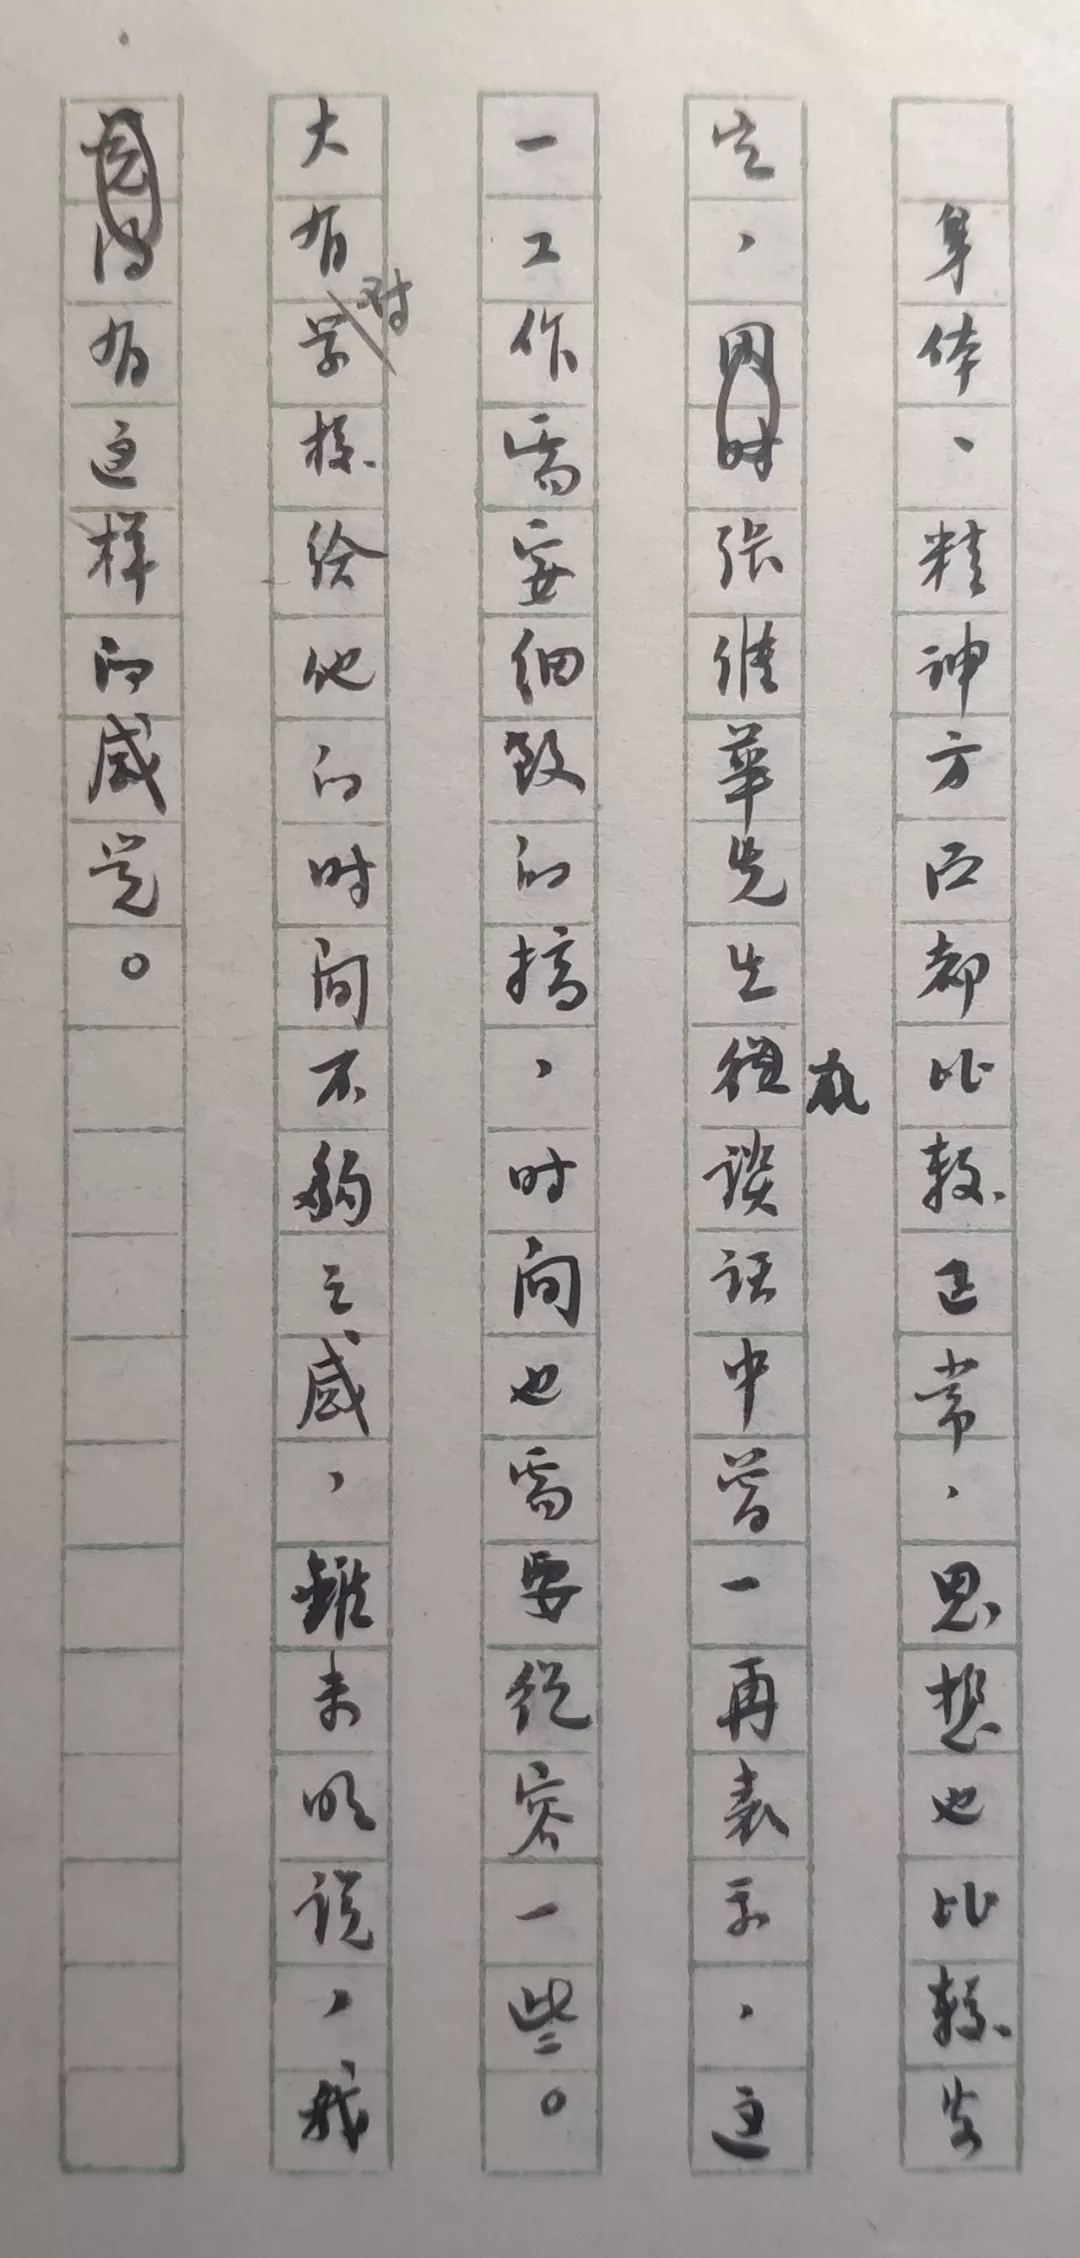 身体、精神方面都比较正常，思想也比较安
定，同时张维华先生在谈话中曾一再表示，这
一工作需要细致的搞，时间也需要从容一些。
大有对学校给他的时间不够之感，虽未明说，我
觉得有这样的感觉。